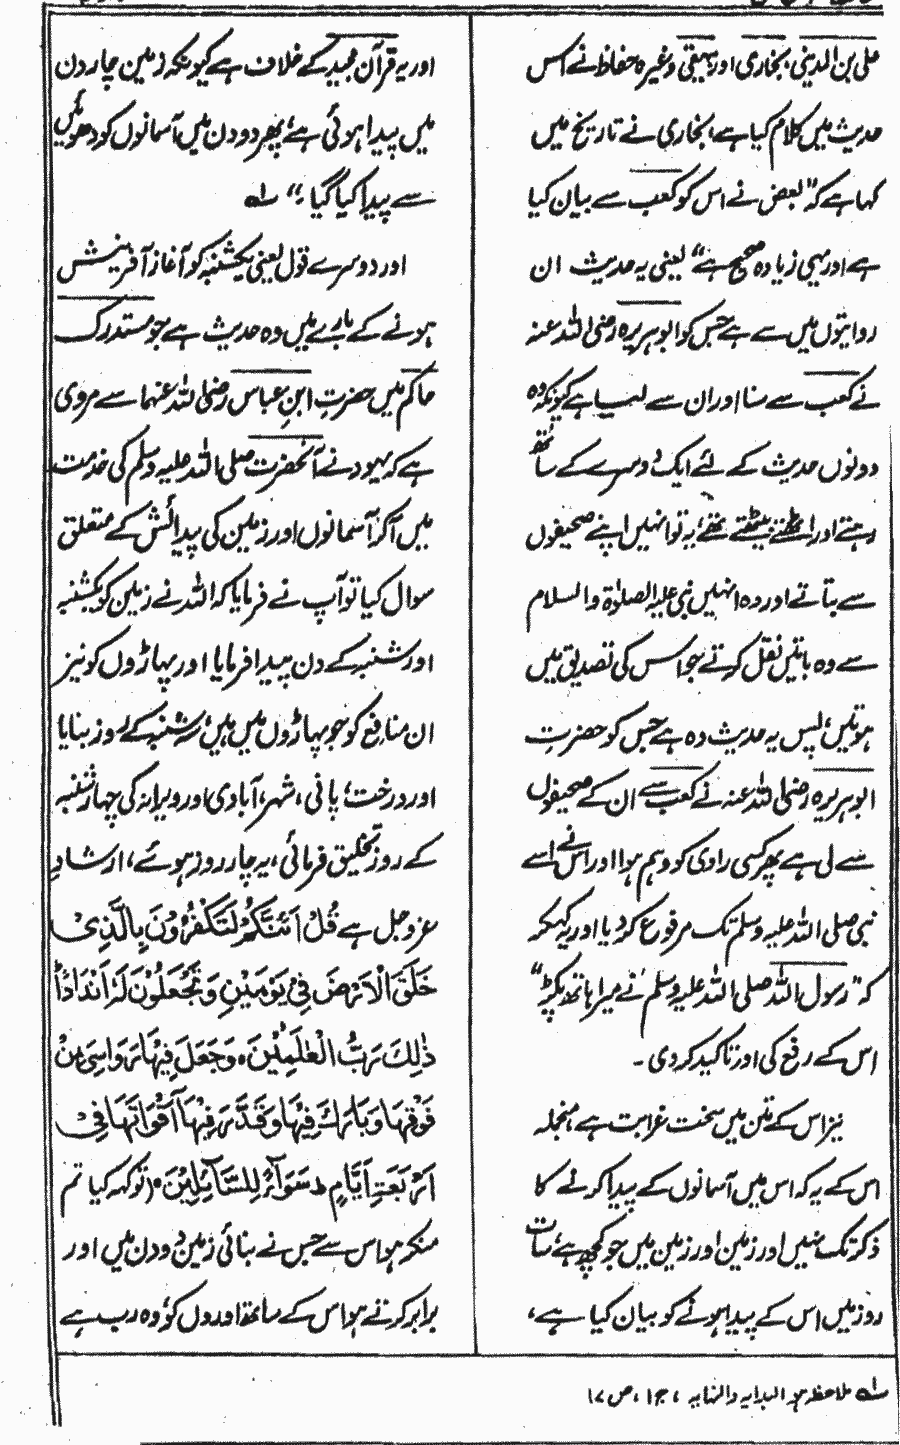 علی بن المدینی، بخاری اور بیہقی وغیرہ حفاظ نے اس
حدیث میں کلام کیا ہے، بخاری نے تاریخ میں
کہا ہے کہ "بعض نے اس کو کعب سے بیان کیا
ہے اور یہی زیادہ صحیح ہے" یعنی یہ حدیث ان
روایتوں میں سے ہے جس کو ابوہریرہ رضی اللہ عنہ
نے کعب سے سنا اور ان سے لیا ہے کیونکہ وہ
دونوں حدیث کے لئے ایک دوسرے کے ساتھ
رہتے اور اٹھتے بیٹھتے تھے، یہ تو انہیں اپنے صحیفوں
سے بتاتے اور وہ انہیں نبی علیہ الصلوٰۃ والسلام
سے وہ باتیں نقل کرتے جو اس کی تصدیق میں
ہوتیں، پس یہ حدیث وہ ہے جس کو حضرت
ابوہریرہ رضی اللہ عنہ نے کعب سے ان کے صحیفوں
سے لی ہے پھر کسی راوی کو وہم ہوا اور اس نے اسے
نبی صلی اللہ علیہ وسلم تک مرفوع کر دیا اور یہ کہہ کر
کہ "رسول اللہ صلی اللہ علیہ وسلم نے میرا ہاتھ پکڑ"
اس کے رفع کی اور تاکید کر دی ۔
نیز اس کے متن میں سخت غرابت ہے، منجملہ
اس کے یہ کہ اس میں آسمانوں کے پیدا کرنے کا
ذکر تک نہیں اور زمین اور زمین میں جو کچھ ہے سات
روز میں اس کے پیدا ہونے کو بیان کیا ہے،
اور یہ قرآن مجید کے خلاف ہے کیونکہ زمین چار دن
میں پیدا ہوئی ہے، پھر دو دن میں آسمانوں کو دھوئیں
سے پیدا کیا گیا ۔" لہ
اور دوسرے قول یعنی یکشنبہ کو آغاز آفرینش
ہونے کے بارے میں وہ حدیث ہے جو مستدرک
حاکم میں حضرت ابن عباس رضی اللہ عنہما سے مروی
ہے کہ یہود نے آنحضرت صلی اللہ علیہ وسلم کی خدمت
میں آکر آسمانوں اور زمین کی پیدائش کے متعلق
سوال کیا تو آپ نے فرمایا کہ اللہ نے زمین کو یکشنبہ
اور شنبہ کے دن پیدا فرمایا اور پہاڑوں کو نیز
ان منافع کو جو پہاڑوں میں ہیں، سہ شنبہ کے روز بنایا
اور درخت، پانی، شہر، آبادی اور ویرانہ کی چہار شنبہ
کے روز تخلیق فرمائی، یہ چار روز ہوئے، ارشاد
عز وجل ہے قُلْ اَئِنَّكُمْ لَتَكْفُرُوْنَ بِالَّذِیْ
خَلَقَ الْاَرْضَ فِیْ یَوْمَیْنِ وَتَجْعَلُوْنَ لَهٗ اَنْدَادًا
ذٰلِكَ رَبُّ الْعٰلَمِیْنَ ہ وَجَعَلَ فِیْهَا رَوَاسِیَ مِنْ
فَوْقِهَا وَبَارَكَ فِیْهَا وَقَدَّرَ فِیْهَا اَقْوَاتَهَا فِیْ
اَرْبَعَةِ اَیَّامٍ ط سَوَآءً لِّلسَّآئِلِیْنَ ہ (تو کہہ کیا تم
منکر ہو اس سے جس نے بنائی زمین دو دن میں اور
برابر کرتے ہو اس کے ساتھ اوروں کو، وہ رب ہے
لہ ملاحظہ ہو البدایہ والنہایہ ، ج۱ ، ص ۱۷